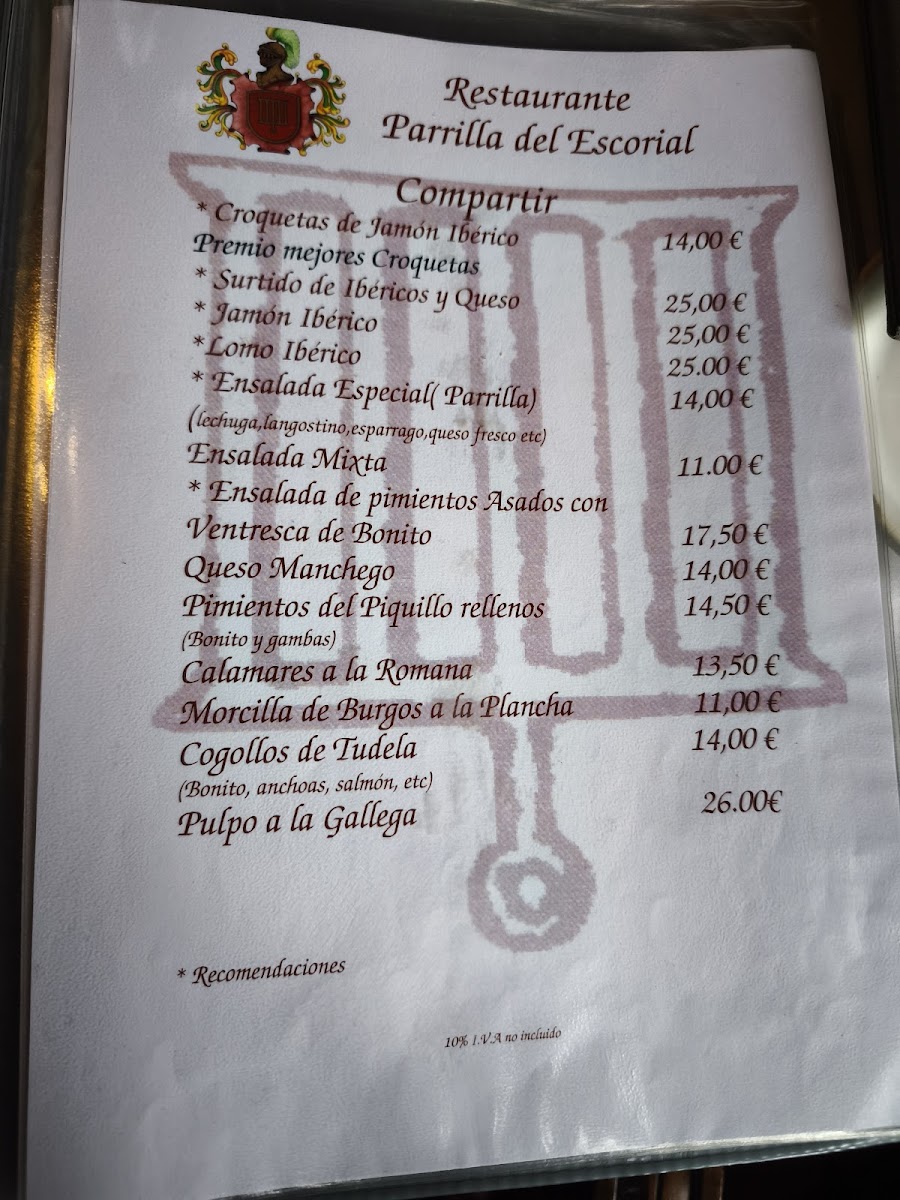 Restaurante
Parrilla del Escorial
Compartir
* Croquetas de Jamón Ibérico 14,00 €
Premio mejores Croquetas
* Surtido de Ibéricos y Queso 25,00 €
* Jamón Ibérico 25,00 €
*Lomo Ibérico 25.00 €
* Ensalada Especial( Parrilla) 14,00 €
(lechuga,langostino,esparrago,queso fresco etc)
Ensalada Mixta 11.00 €
* Ensalada de pimientos Asados con
Ventresca de Bonito 17,50 €
Queso Manchego 14,00 €
Pimientos del Piquillo rellenos 14,50 €
(Bonito y gambas)
Calamares a la Romana 13,50 €
Morcilla de Burgos a la Plancha 11,00 €
Cogollos de Tudela 14,00 €
(Bonito, anchoas, salmón, etc)
Pulpo a la Gallega 26.00€
* Recomendaciones
10% I.V.A no incluido